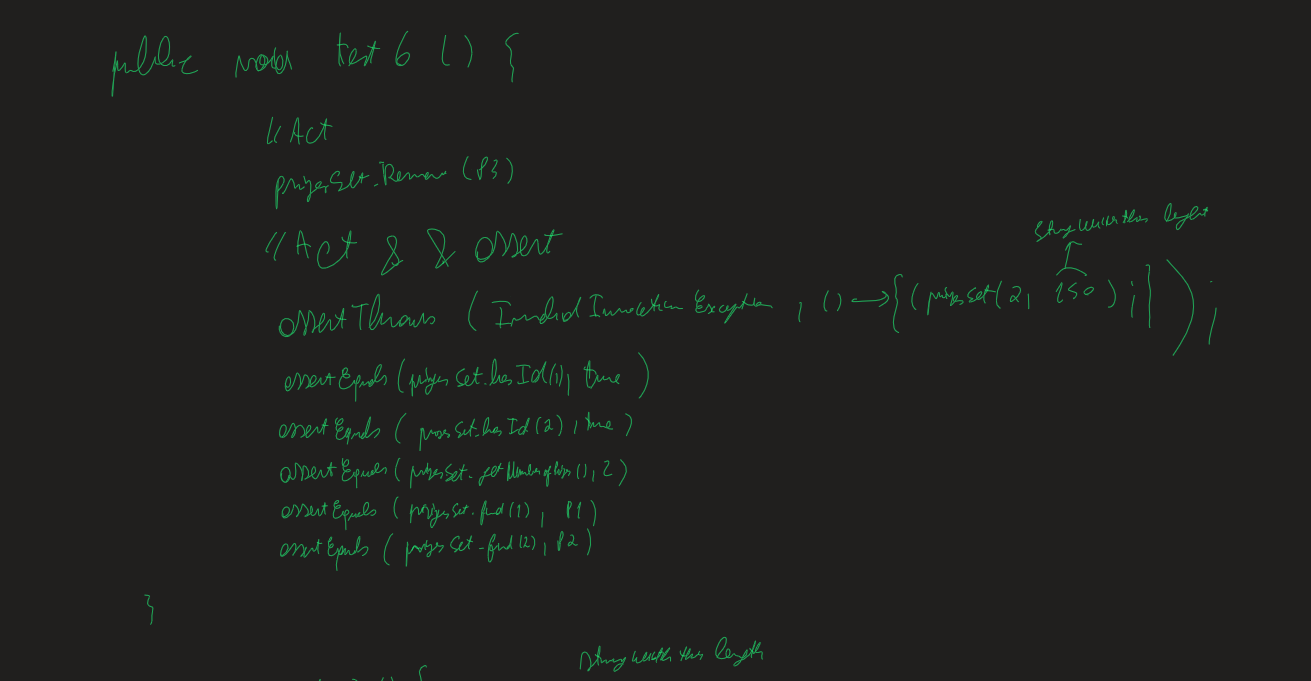 public void test 6 () {
// Act
prizesSet.Remove (P3)
// Act & & assert
String with this lenght
assertThrows ( Invalid Invocation Exception , () → { ( prizesSet(2, 150 ) ; } ) ;
assertEquals (prizesSet.hasId(1), true )
assertEquals ( prizesSet.hasId (2) , true )
assertEquals ( prizesSet.getNumberofPrizes (), 2)
assertEquals ( prizesSet.find (1) , P1)
assertEquals ( prizesSet.find (2), P2 )
}
String with this length
() {